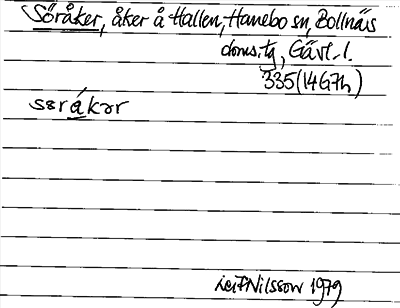 Söråker, åker å Hallen, Hanebo sn, Bollnäs
doms.tg, Gävl. l.
335 (14G7h)
sǝrákǝr
Leif Nilsson 1979